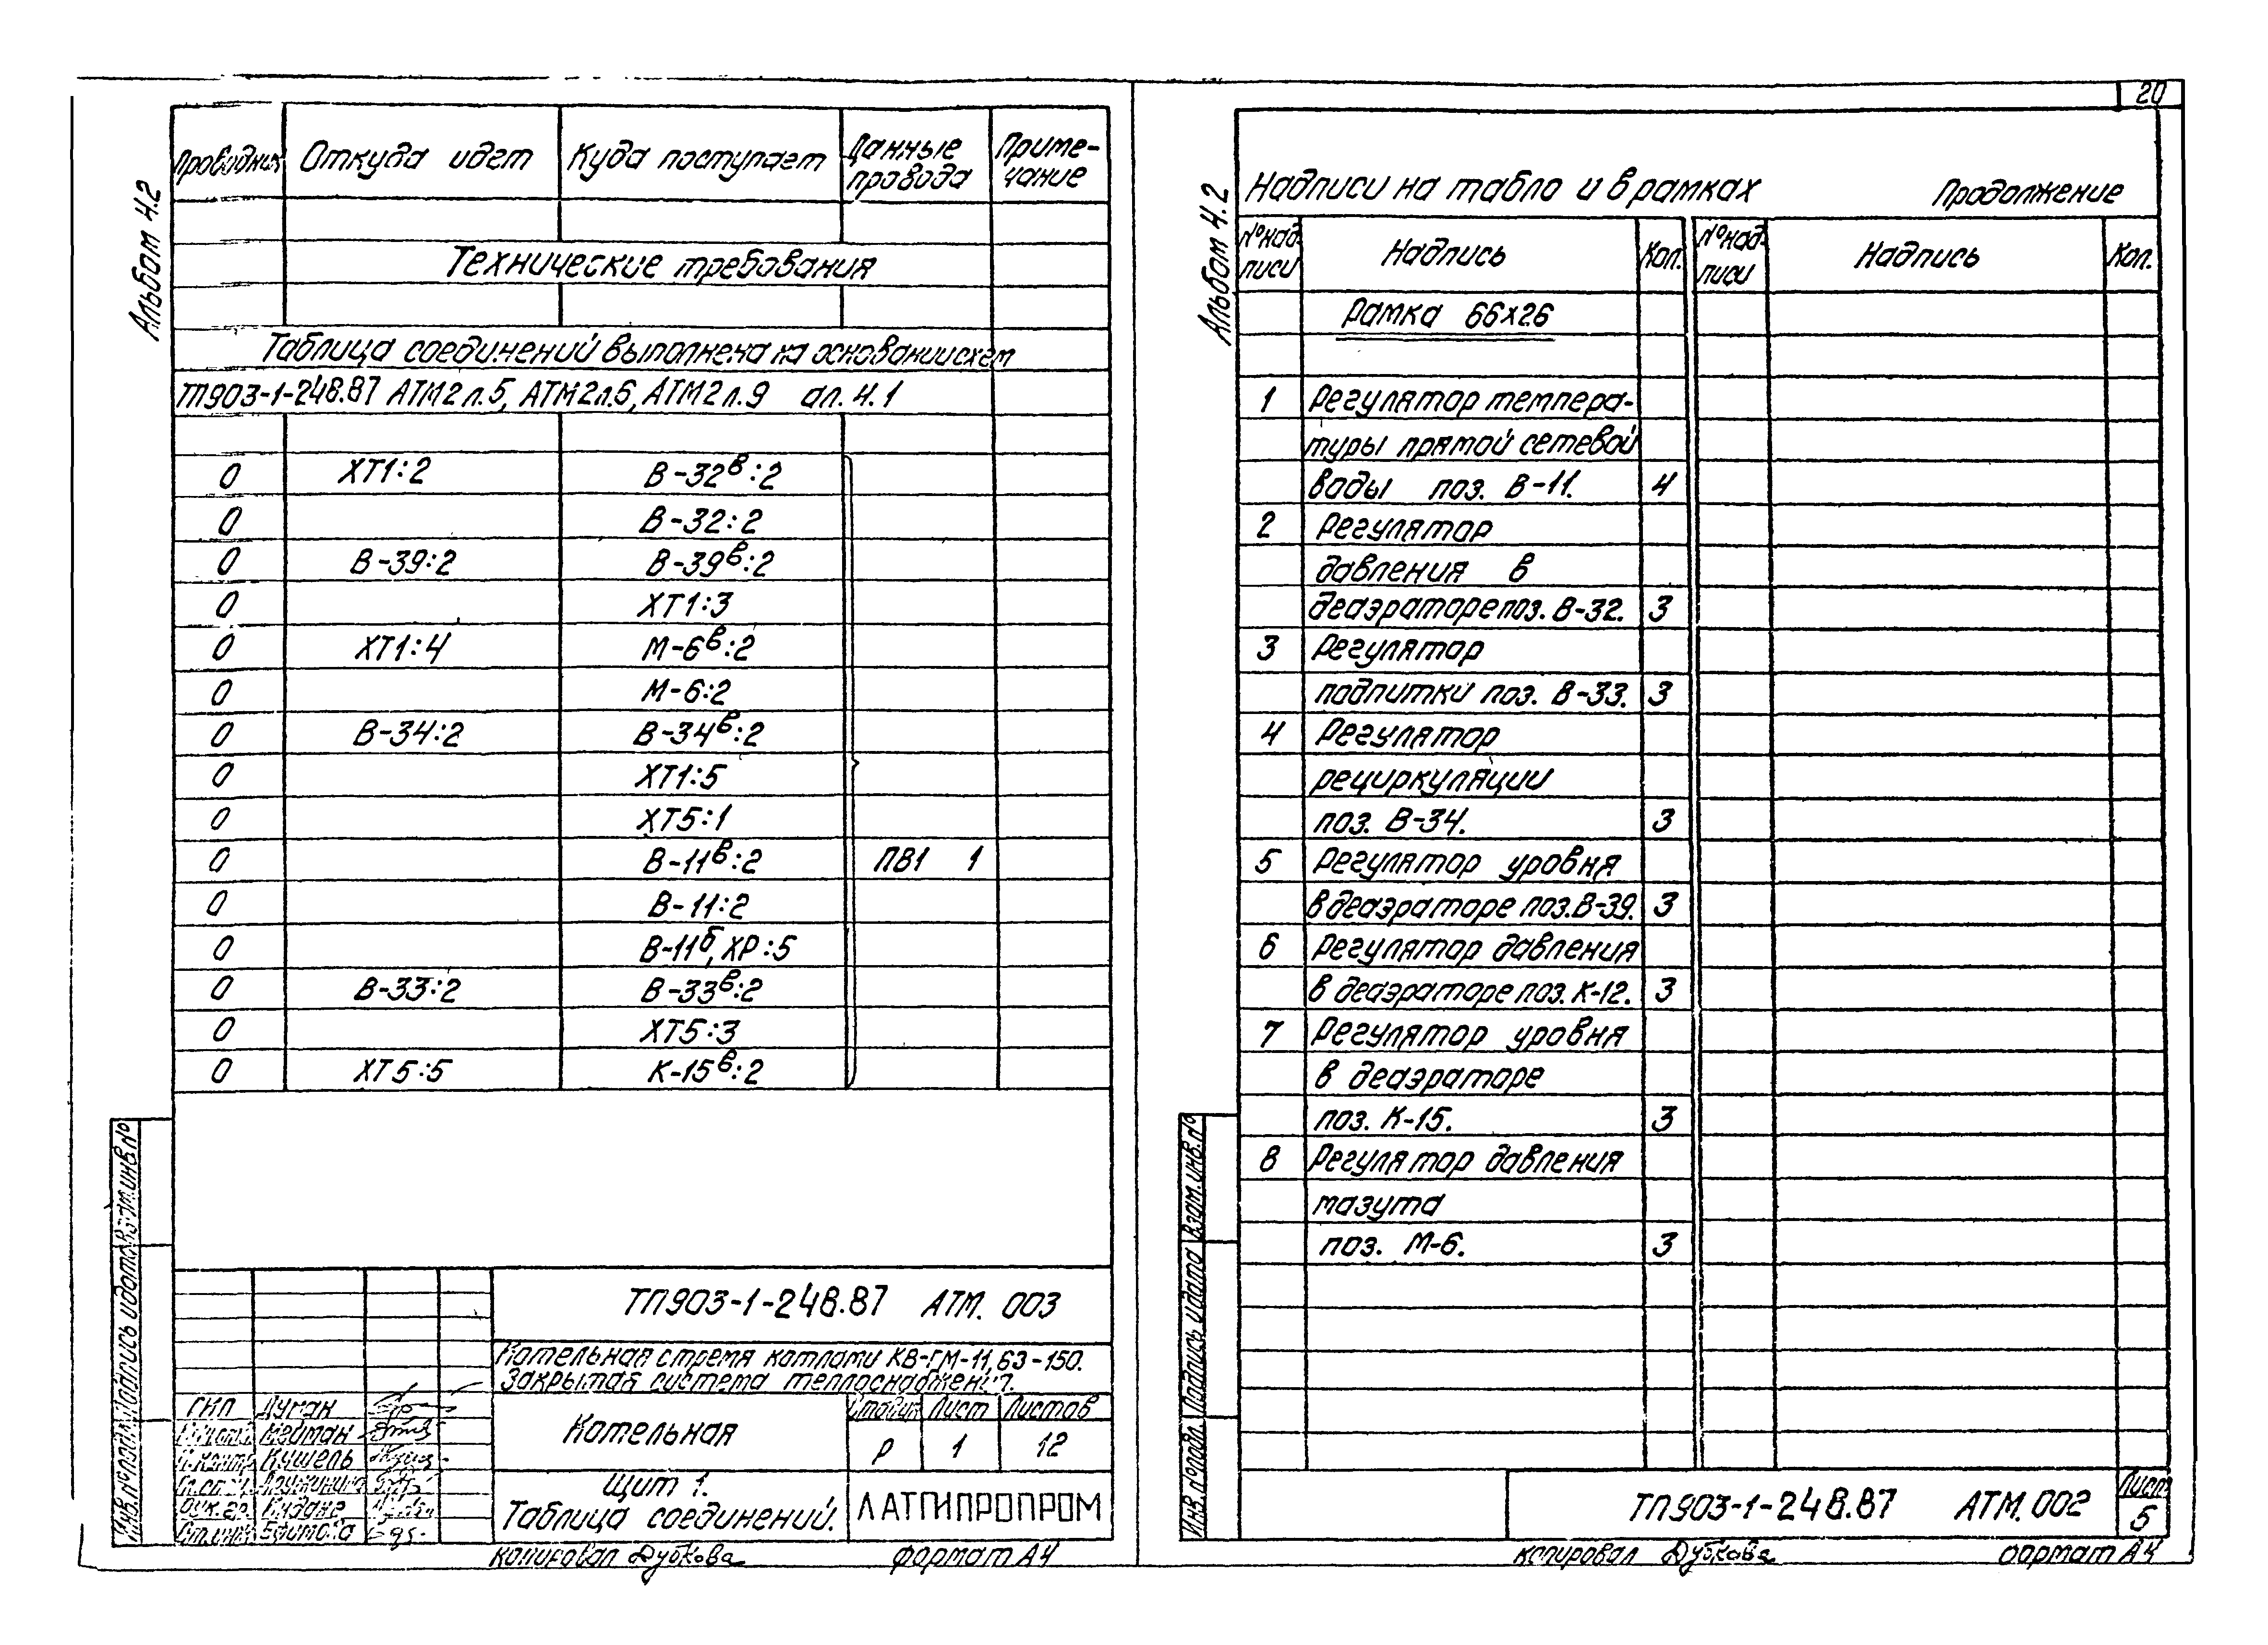 20
Альбом 4.2
Проводник Откуда идет Куда поступает Данные провода Приме-чание
Технические требования
Таблица соединений выполнена на основании схем
ТП903-1-248.87 АТМ2 л.5, АТМ2 л.6, АТМ2 л.9 ал. 4.1
0 ХТ1:2 В-32в:2
0 В-32:2
0 В-39:2 В-39в:2
0 ХТ1:3
0 ХТ1:4 М-6в:2
0 М-6:2
0 В-34:2 В-34в:2
0 ХТ1:5
0 ХТ5:1
0 В-11в:2 ПВ1 1
0 В-11:2
0 В-11б, ХР:5
0 В-33:2 В-33в:2
0 ХТ5:3
0 ХТ5:5 К-15в:2
Инв.№подл. Подпись и дата Взам.инв.№
ТП903-1-248.87 АТМ. 003
Котельная с тремя котлами КВ-ГМ-11,63-150.
Закрытая система теплоснабжения.
ГИП Думан
Мейман
Н.контр Кушель
Рук.гр.
Котельная
Стадия Лист Листов
Р 1 12
Щит 1.
Таблица соединений.
ЛАТГИПРОПРОМ
копировал Дубкова формат А4
Альбом 4.2
Надписи на табло и в рамках Продолжение
№ над-писи Надпись Кол. № над-писи Надпись Кол.
Рамка 66х26
1 Регулятор темпера-
туры прямой сетевой
воды поз. В-11. 4
2 Регулятор
давления в
деаэраторе поз. В-32. 3
3 Регулятор
подпитки поз. В-33. 3
4 Регулятор
рециркуляции
поз. В-34. 3
5 Регулятор уровня
в деаэраторе поз. В-39. 3
6 Регулятор давления
в деаэраторе поз. К-12. 3
7 Регулятор уровня
в деаэраторе
поз. К-15. 3
8 Регулятор давления
мазута
поз. М-6. 3
Инв.№подл. Подпись и дата Взам.инв.№
ТП903-1-248.87 АТМ. 002
Лист
5
копировал Дубкова формат А4